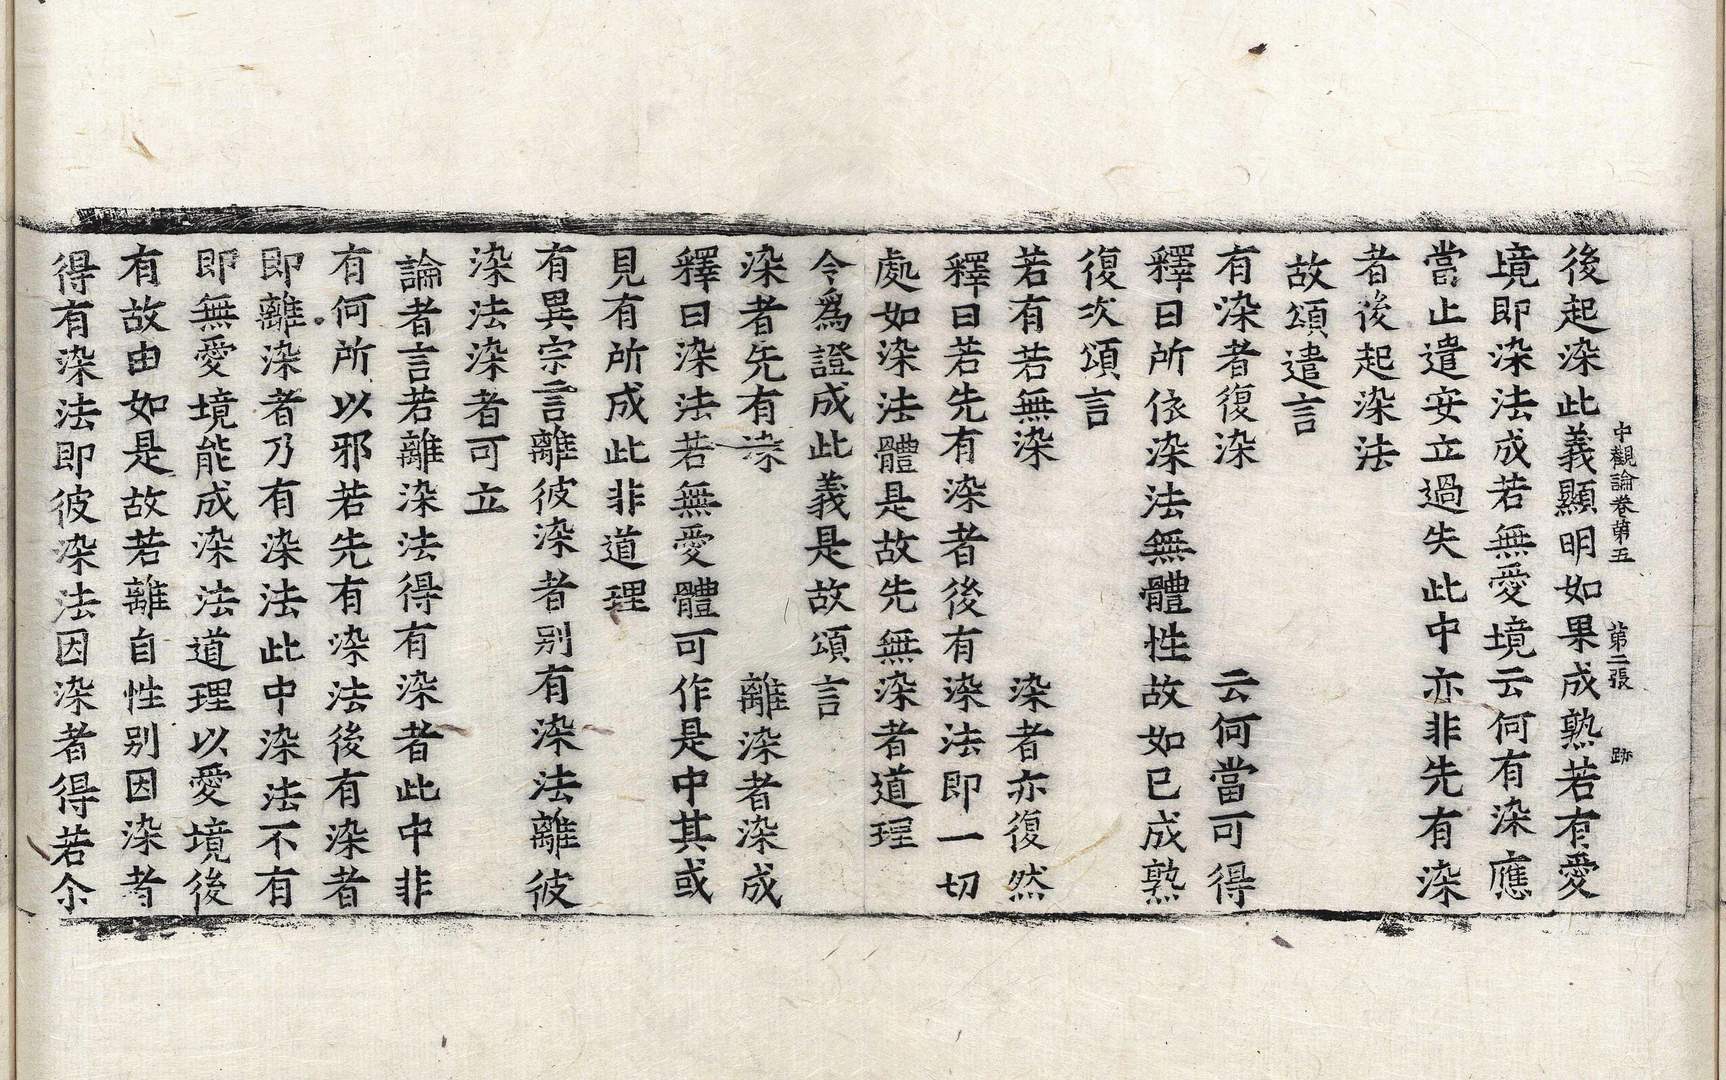 中觀論卷第五 第二張 跡
後起染此義顯明如果成熟若有愛
境即染法成若無愛境云何有染應
當止遣安立過失此中亦非先有染
者後起染法
故頌遣言
有染者復染 云何當可得
釋曰所依染法無體性故如已成熟
復次頌言
若有若無染 染者亦復然
釋曰若先有染者後有染法即一切
處如染法體是故先無染者道理
令爲證成此義是故頌言
染者先有染 離染者染成
釋曰染法若無愛體可作是中其或
見有所成此非道理
有異宗言離彼染者別有染法離彼
染法染者可立
論者言若離染法得有染者此中非
有何所以邪若先有染法後有染者
即離染者乃有染法此中染法不有
即無愛境能成染法道理以愛境後
有故由如是故若離自性別因染者
得有染法即彼染法因染者得若尒